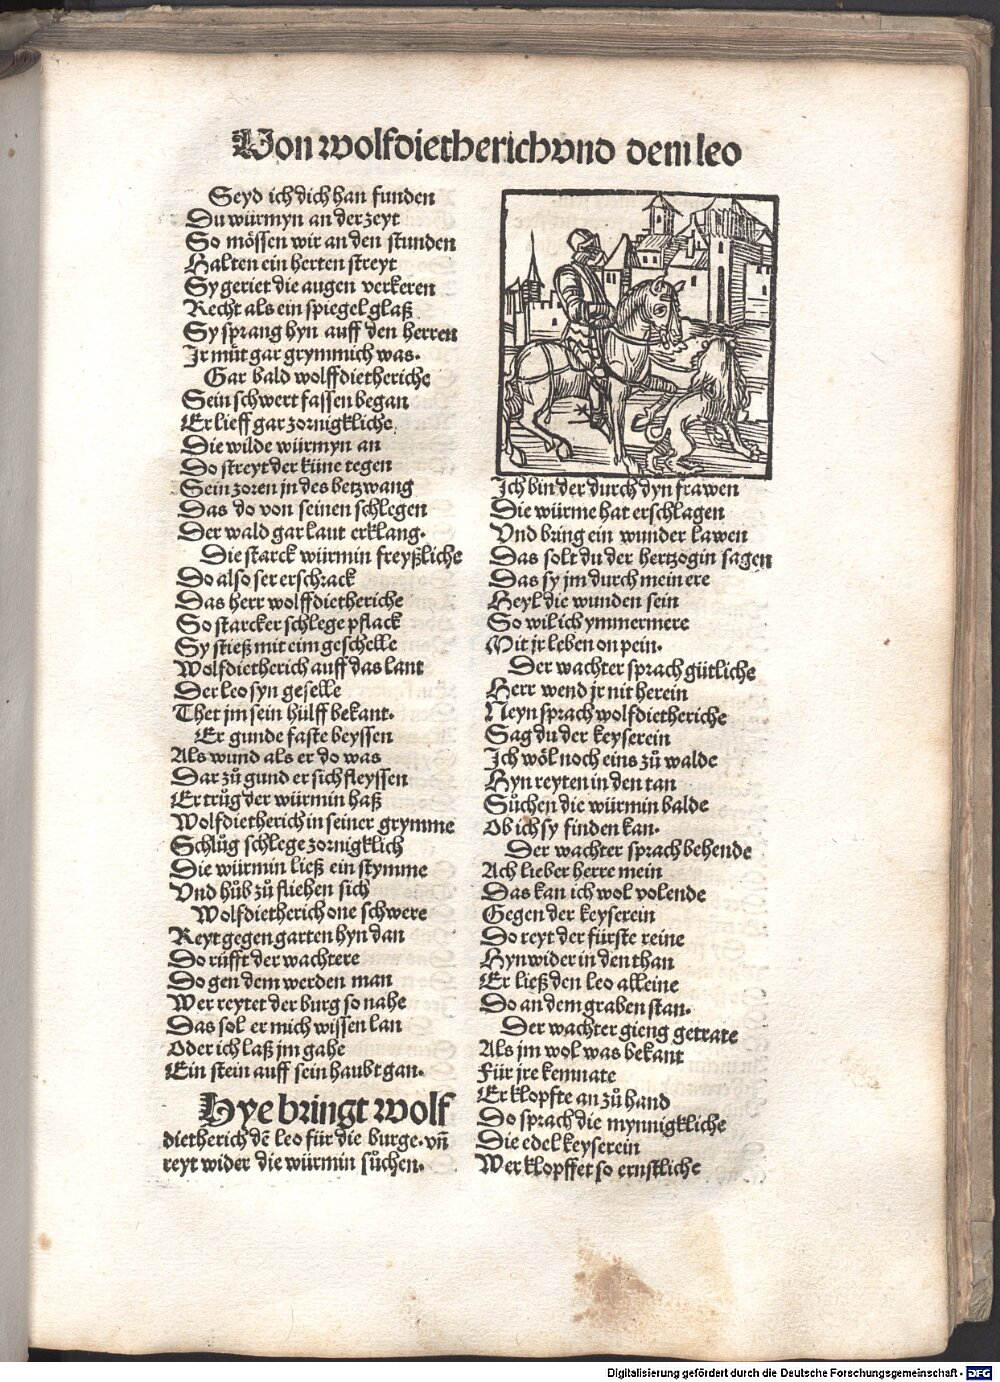 Von wolfdietherich vnd dem leo
Seyd ich dich han funden
Du würmyn an der zeyt
So mössen wir an den stunden
Halten ein herten streyt
Sy geriet die augen verkeren
Recht als ein spiegel glaß
Sy sprang hyn auff den herren
Jr můt gar grymmich was.
Gar bald wolffdietheriche
Sein schwert fassen began
Er lieff gar zornigkliche
Die wilde würmyn an
Do streyt der küne tegen
Sein zoren jn des betzwang
Das do von seinen schlegen
Der wald gar laut erklang.
Die starck würmin freyßliche
Do also ser erschrack
Das herr wolffdietheriche
So starcker schlege pflack
Sy stieß mit eim geschelle
Wolfdietherich auff das lant
Der leo syn geselle
Thet jm sein hülff bekant.
Er gunde faste beyssen
Als wund als er do was
Dar zů gund er sich fleyssen
Er trůg der würmin haß
Wolfdietherich in seiner grymme
Schlůg schlege zornigklich
Die würmin ließ ein stymme
Vnd hůb zů fliehen sich
Wolfdietherich one schwere
Reyt gegen garten hyn dan
Do růfft der wachtere
Do gen dem werden man
Wer reytet der burg so nahe
Das sol er mich wissen lan
Oder ich laß jm gahe
Ein stein auff sein haubt gan.
Hye bringt wolf
dietherich dē leo für die burge. vñ
reyt wider die würmin sůchen.
Jch bin der durch dyn frawen
Die würme hat erschlagen
Vnd bring ein wunder lawen
Das solt du der hertzogin sagen
Das sy jm durch mein ere
Heyl die wunden sein
So wil ich ymmermere
Mit jr leben on pein.
Der wachter sprach gütliche
Herr wend jr nit herein
Neyn sprach wolfdietheriche
Sag du der keyserein
Jch wöl noch eins zů walde
Hyn reyten in den tan
Sůchen die würmin balde
Ob ich sy finden kan.
Der wachter sprach behende
Ach lieber herre mein
Das kan ich wol volende
Gegen der keyserein
Do reyt der fürste reine
Hyn wider in den than
Er ließ den leo alleine
Do an dem graben stan.
Der wachter gieng getrate
Als jm wol was bekant
Für jre kemnate
Er klopfte an zů hand
Do sprach die mynnigkliche
Die edel keyserein
Wer klopffet so ernstliche
Digitalisierung gefördert durch die Deutsche Forschungsgemeinschaft - DFG